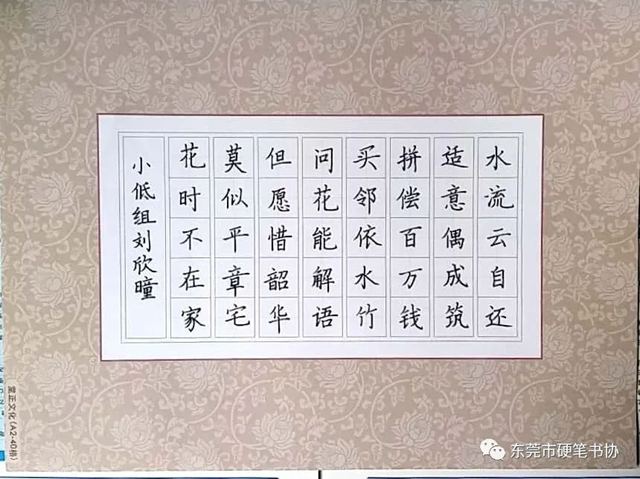 水流云自还
适意偶成筑
拼偿百万钱
买邻依水竹
问花能解语
但愿惜韶华
莫似平章宅
花时不在家
小低组刘欣曈
堂正文化(A2-40格)
东莞市硬笔书协